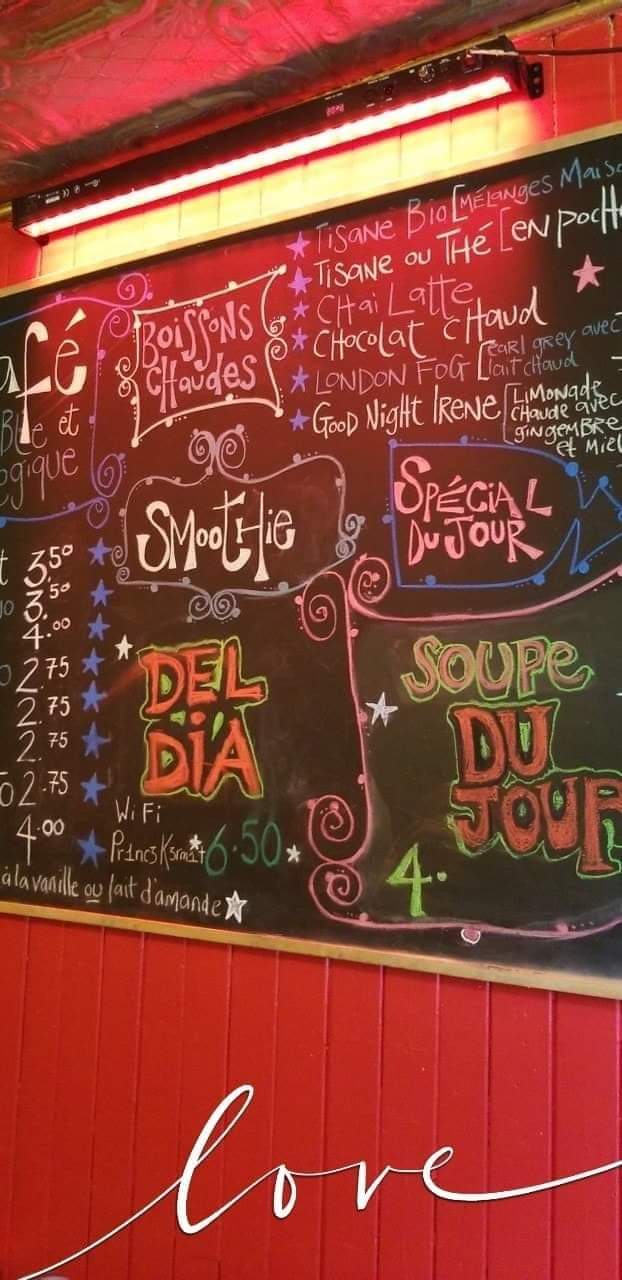 afé
BLe et
ogique
t 3.50
3.50
4.00
2.75
2.75
2.75
o 2.75
4.00
à la vanille ou lait d'amande
BOISSONS
CHAUDES
TISANE BIO [MÉLANGES MAISO
TISANE OU THÉ [EN POCH
CHAI LATTE
CHOCOLAT CHAUD
LONDON FOG [EARL GREY avec
lait chaud
GOOD NIGHT IRENE [LIMONADE
CHAUDE avec
GINGEMBRE
et MIEL
SMOOTHIE
DEL
DIA
6.50
WiFi
SPÉCIAL
DU JOUR
SOUPE
DU
JOUR
4.
love